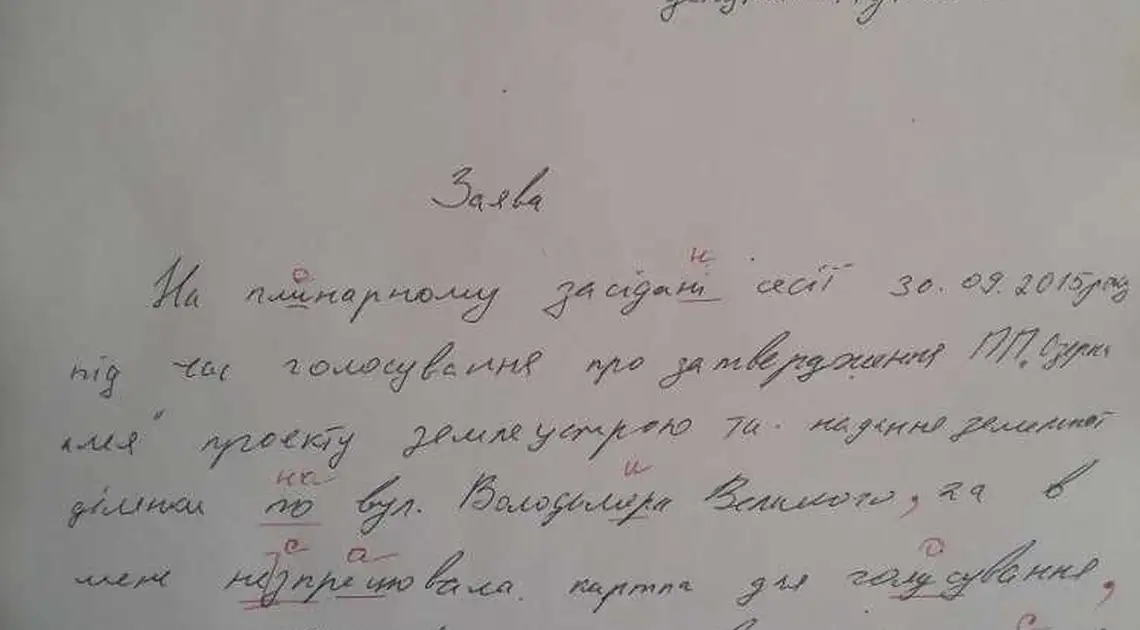 Заява
н
На плинарному засідані сесії 30.09.2015 року
під час голосування про затвердження ПП „Озерна
алея" проекту землеустрою та надання земельної
на и
ділянки по вул. Володимера Великого, за в
с а о
мене незпрецювала картка для голусування,